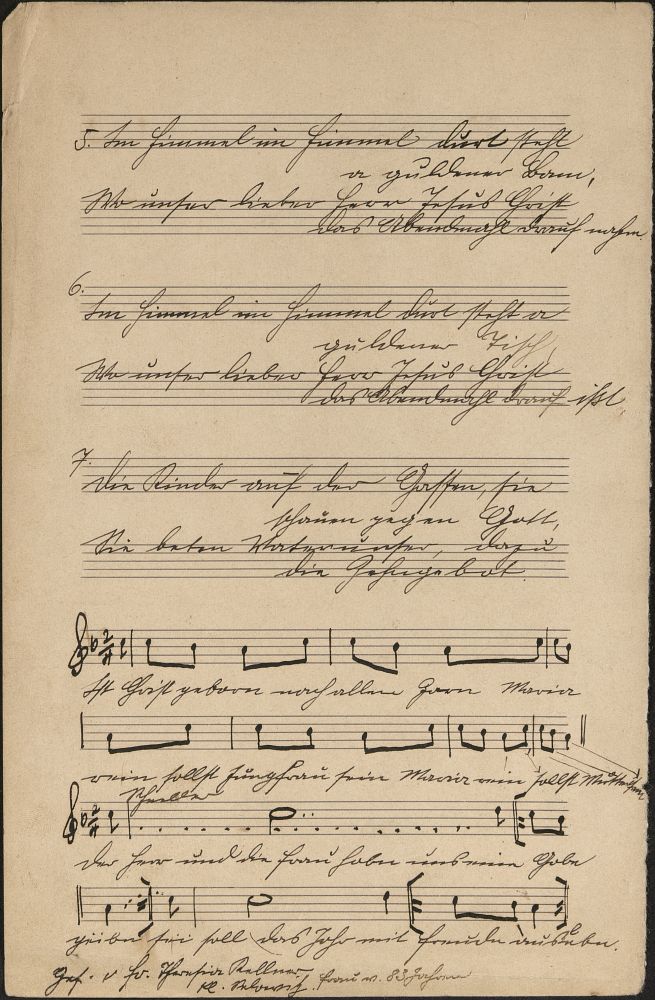 5. Im Himmel im Himmel durt steht
a guldener Bam,
Wo unser lieber Herr Jesus Christ
das Abendmahl drauf nahm.
6.
Im Himmel im Himmel durt steht a
guldener Tisch,
Wo unser lieber Herr Jesus Christ
das Abendmahl drauf ißt
7.
Die Kinder auf der Gassen, sie
schauen gegen Gott,
Sie beten Vaterunser, dazu
die Zehngebot.
2/4
Ist Christ geborn nach allem Zorn Maria
rein sollst Jungfrau sein Maria rein sollst Mutter sein
Schneller
2/4
Der Herr und die Frau habn uns eine Gabe
geben sei soll das Johr mit Freude auslebn.
Ges. v Fr. Theresia Kellner
Kl. Frau v. 83 Jahren